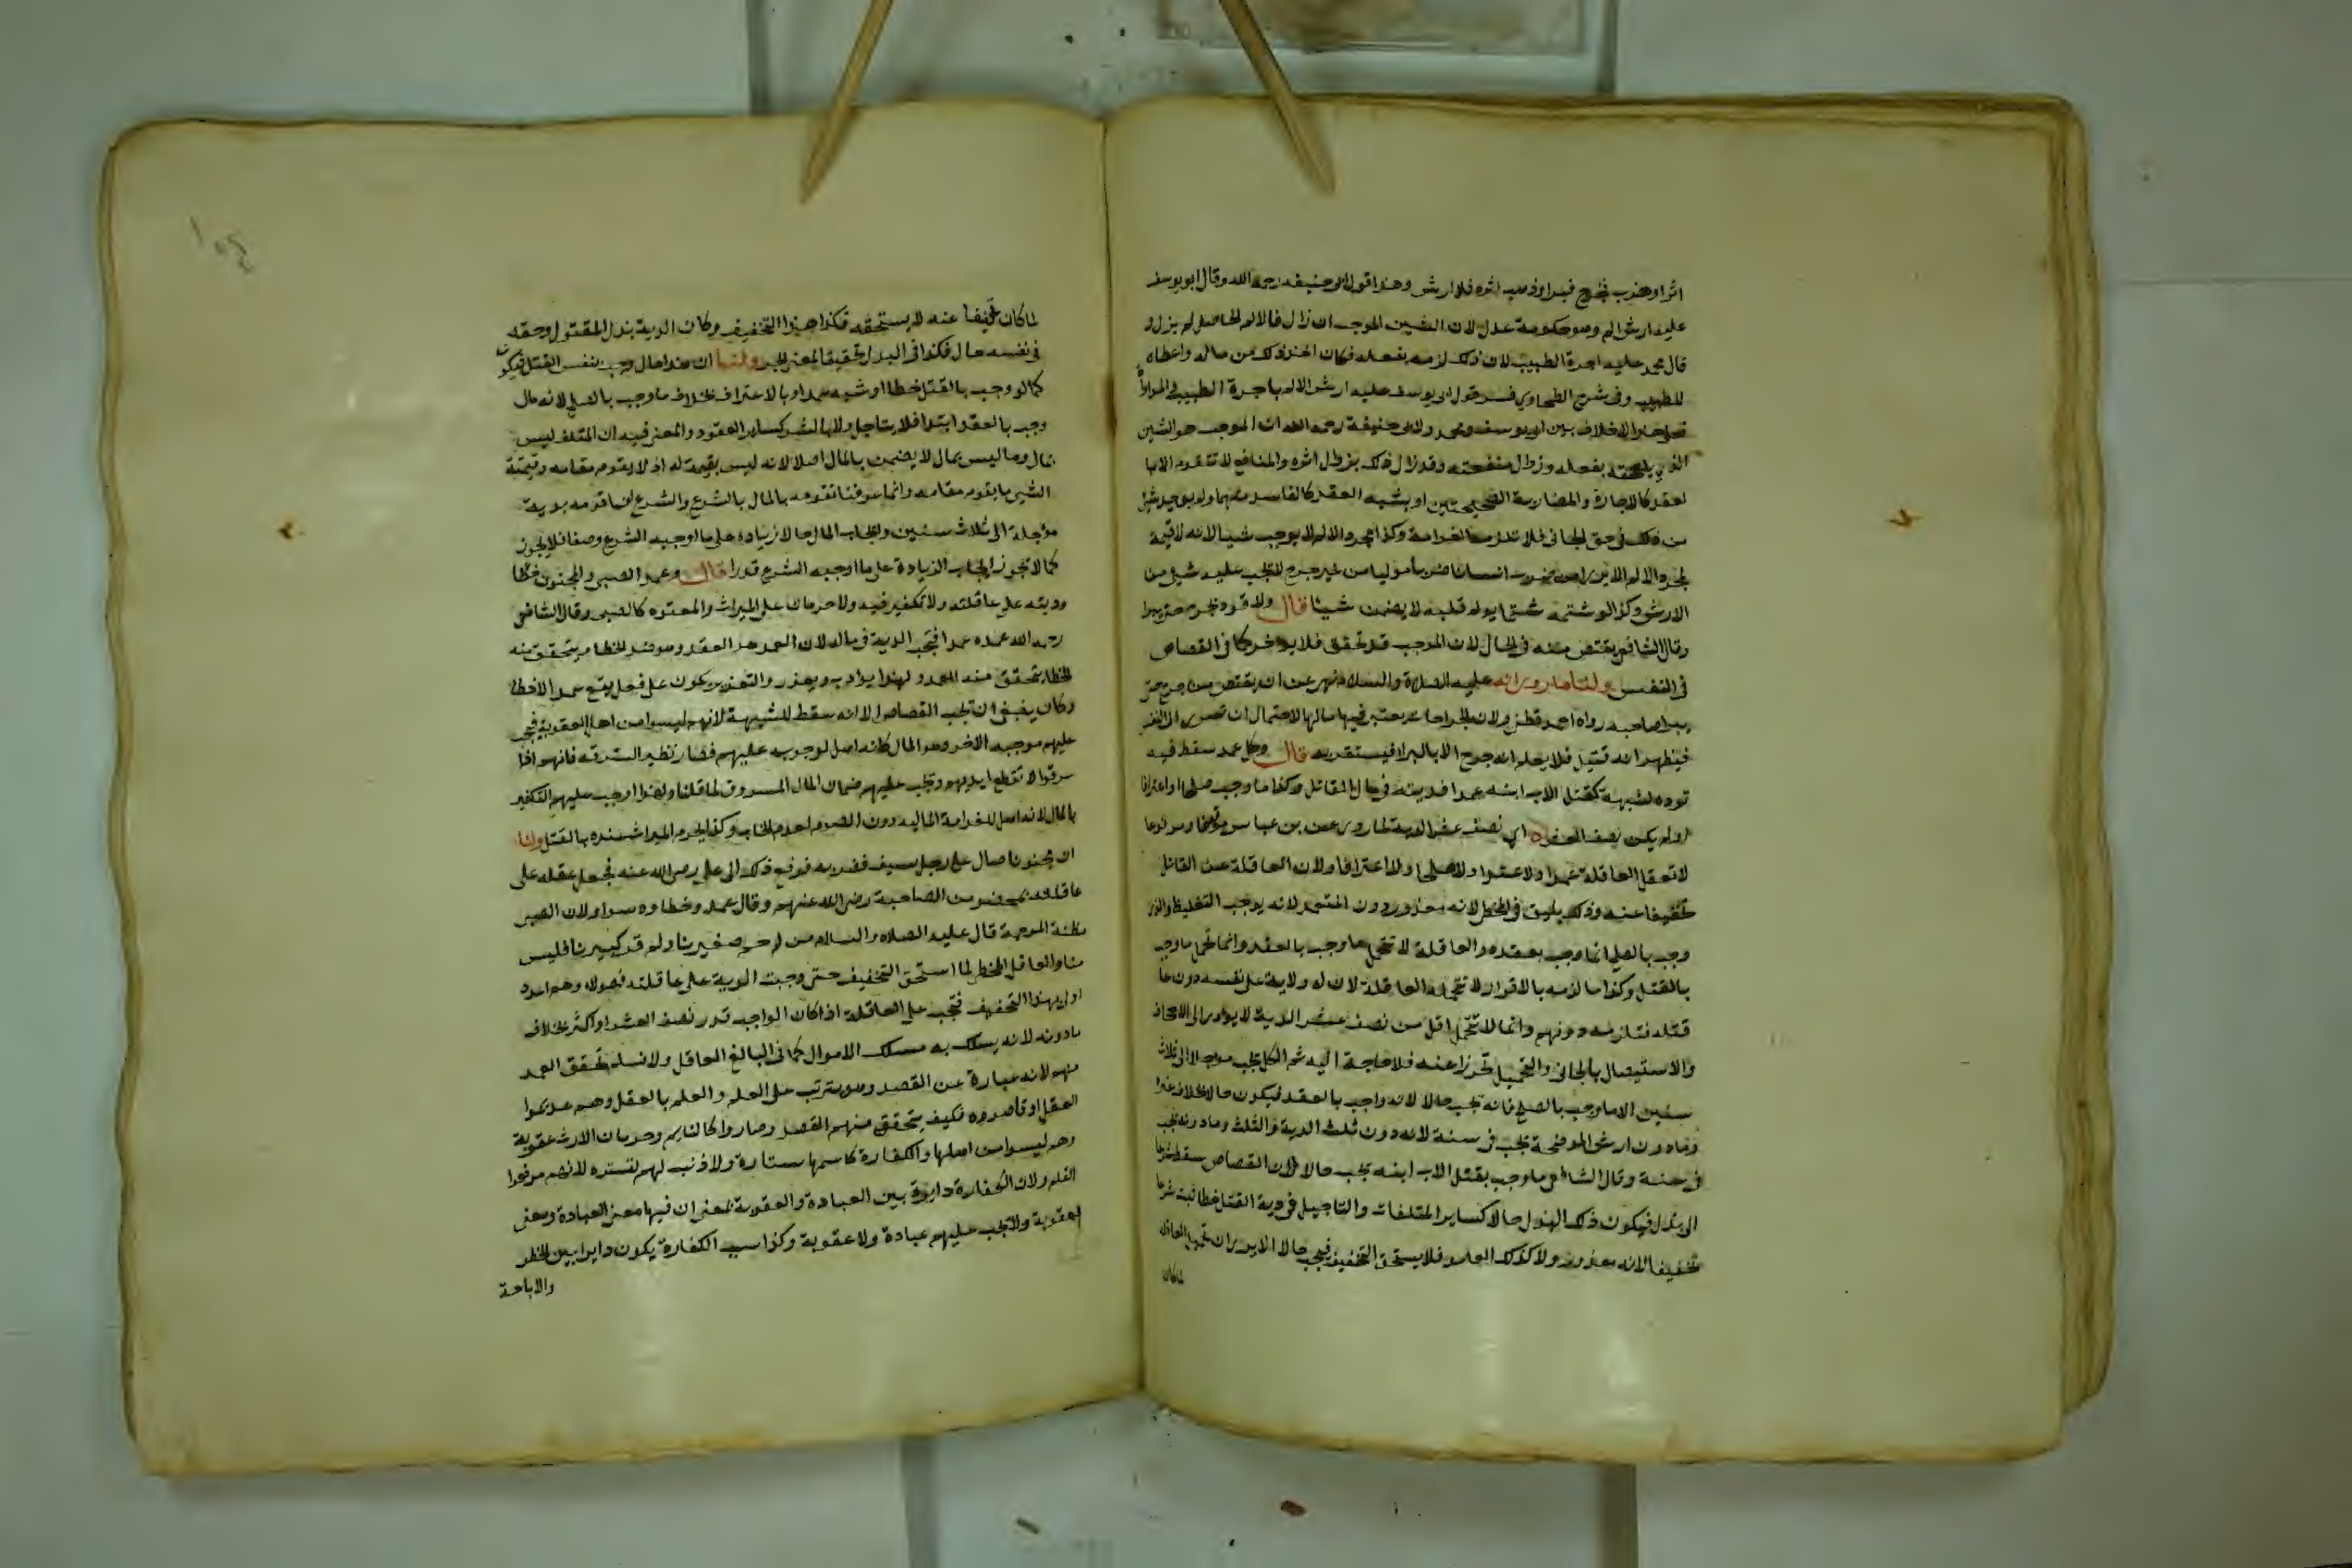 اثر او ضرب فجرح فبرا وذهب اثره فلا ارش وهذا قول ابو حنيفه رحمه الله وقال ابو يوسف
عليه ارش الالم وهو حكومة عدل لان الشين الموجب ان زال فالالم الحاصل لم يزل و
قال محمد عليه اجرة الطبيب لان ذلك لزمه بفعله فكان اخذ ذلك من ماله واعطاه
للطبيب وفي شرح الطحاوي فسر قول ابى يوسف عليه ارش الالم باجرة الطبيب والمداواة
فعلى هذا الاختلاف بين ابى يوسف ومحمد ولابى حنيفة رحمه الله ان الموجب هو الشين
الذي يلحقه بفعله وزوال منفعته وقد زال ذلك بزوال اثره والمنافع لا تتقوم الا با
لعقد كالاجارة والمضاربة الصحيحتين او بشبه العقد كالفاسد منهما ولم يوجد شئ
من ذلك في حق الجاني فلا تلزمه الغرامة وكذا مجرد الالم لا يوجب شيا لانه لا قيمة
لمجرد الالم الا يرى ان من ضرب انسانا ضربا موليا من غير جرح لا يجب عليه شئ من
الارش وكذا لو شتمه شتما يولم قلبه لا يضمن شيئا قال ولا قود بجرح حتى يبرا
وقال الشافعي يقتص منه في الحال لان الموجب قد تحقق فلا يوخر كما في القصاص
في النفس ولنا ما روي انه عليه الصلاة والسلام نهى عن ان يقتص من جرح حتى
يبرا صاحبه رواه احمد قطني ولان الجراحات يعتبر فيها مالها لاحتمال ان تسرى الى النفس
فيظهر انه قتيل فلا يعلم انه جرح الا بالبرا فيستقر به قال وكل عمد سقط فيه
قوده لشبهة كقتل الاب ابنه عمدا فديته في مال القاتل وكذا ما وجب صلحا او اعترافا
او لم يكن نصف العشر اي نصف عشر الدية لما روى عن بن عباس موقوفا ومرفوعا
لا تعقل العاقلة عمدا ولا عبدا ولا صلحا ولا اعترافا ولان العاقلة عن القاتل
تخفيفا عنه وذلك يليق في الخطا لانه معذور دون المتعمد لانه يوجب التغليظ والذي
وجب بالصلح انما وجب بعقده والعاقلة لا تتحمل ما وجب بالعقد وانما تتحمل ما وجب
بالقتل وكذا ما لزمه بالاقرار لا تتحمله العاقلة لان له ولاية على نفسه دون عا
قتله فتلزمه دونهم وانما لا تتحمل اقل من نصف عشر الدية لا يودي الى الاجحاف
والاستيصال بالجاني والتحميل تحرزا عنه فلا حاجة اليه ثم الكل تجب موجلا الى ثلاث
سنين الا ما وجب بالصلح فانه يجب حالا لانه واجب بالعقد فيكون حالا بخلاف غيره
وما دون ارش الموضحة يجب في سنة لانه دون ثلث الدية والثلث وما دونه يجب
في سنة وقال الشافعي ما وجب بقتل الاب ابنه يجب حالا لان القصاص سقط شرعا
الى بدل فيكون ذلك البدل حالا كساير المتلفات والتاجيل في دية القتل خطا ثبت شرعا
تخفيفا لانه معذور ولا كذلك العامد فلا يستحق التخفيف فيجب حالا الا يرى ان تحمل العاقلة
لما كان
لما كان تخفيفا عنه لا يستحقه فكذا هذا التخفيف وكان الدية بدل المقتول وحقه
في نفسه حال فكذا في البدل تحقيقا لمعنى الجبر ولنا ان هذا مال وجب بنفس القتل فيكون
كما لو وجب بالقتل خطا او شبه عمد او بالاعتراف بخلاف ما وجب بالصلح لانه مال
وجب بالعقد ابتدا فلا يتاجل ولا بالشرط كساير العقود والمعنى فيه ان المتلف ليس
بمال وما ليس بمال لا يضمن بالمال اصلا لانه ليس بقيمة له اذ لا يقوم مقامه وقيمة
الشئ ما يقوم مقامه وانما عرفنا تقومه بالمال بالشرع والشرع انما قومه بدية
مؤجلة الى ثلاث سنين وايجاب المال حالا زيادة على ما اوجبه الشرع وصفا فلا يجوز
كما لا تجوز ايجاب الزيادة على ما اوجبه الشرع قدرا قال وعمد الصبي والمجنون خطا
وديته على عاقلته ولا تكفير فيه ولا حرمان على الميراث والمعتوه كالصبى وقال الشافعي
رحمه الله عمده عمد فتجب الدية في ماله لان العمد هو القصد وهو ضد الخطا فمن يتحقق منه
الخطا يتحقق منه العمد ولهذا يودب ويعزر والتعزير يكون على فعل يقع عمدا لا خطا
وكان ينبغي ان تجب القصاص الا انه سقط للشبهة لانهم ليسوا من اهل العقوبة فتجب
عليهم موجبه الاخر وهو المال لانه اصل لوجوبه عليهم فصار نظير السرقه فانهم اذا
سرقوا لا تقطع ايديهم وتجب عليهم ضمان المال المسروق لما قلنا ولهذا اوجب عليهم التكفير
بالمال لانه اهل للغرامة المالية دون الصوم لعدم الخطاب وكذا يحرم الميراث عنده بالقتل ولنا
ان مجنونا صال على رجل بسيف فضربه فرفع ذلك الى على رضي الله عنه فجعل عقله على
عاقلته بمحضر من الصحابة رضي الله عنهم وقال عمده وخطاوه سوا ولان الصبى
مظنة المرحمة قال عليه الصلاه والسلام من لم يرحم صغيرنا ولم يوقر كبيرنا فليس
منا والعاقل المخطى لما استحق التخفيف حتى وجبت الدية على عاقلته فهولاء وهم اعذر
اولى بهذا التخفيف فتجب على العاقلة اذا كان الواجب قدر نصف العشر او اكثر بخلاف
ما دونه لانه يسلك به مسلك الاموال كما في البالغ العاقل ولا نسلم تحقق العمد
منهم لانه عبارة عن القصد وهو يترتب على العلم والعلم بالعقل وهم عديموا
العقل او قاصروه فكيف يتحقق منهم القصد وصاروا كالنايم وحرمان الارث عقوبة
وهم ليسوا من اهلها والكفارة كاسمها ستارة ولا ذنب لهم تستره لانهم مرفوعوا
القلم ولان الكفارة دايرة بين العبادة والعقوبة بمعنى ان فيها معنى العبادة ومعنى
العقوبة ولا تجب عليهم عبادة ولا عقوبة وكذا سبب الكفارة يكون دايرا بين الحظر
والاباحة